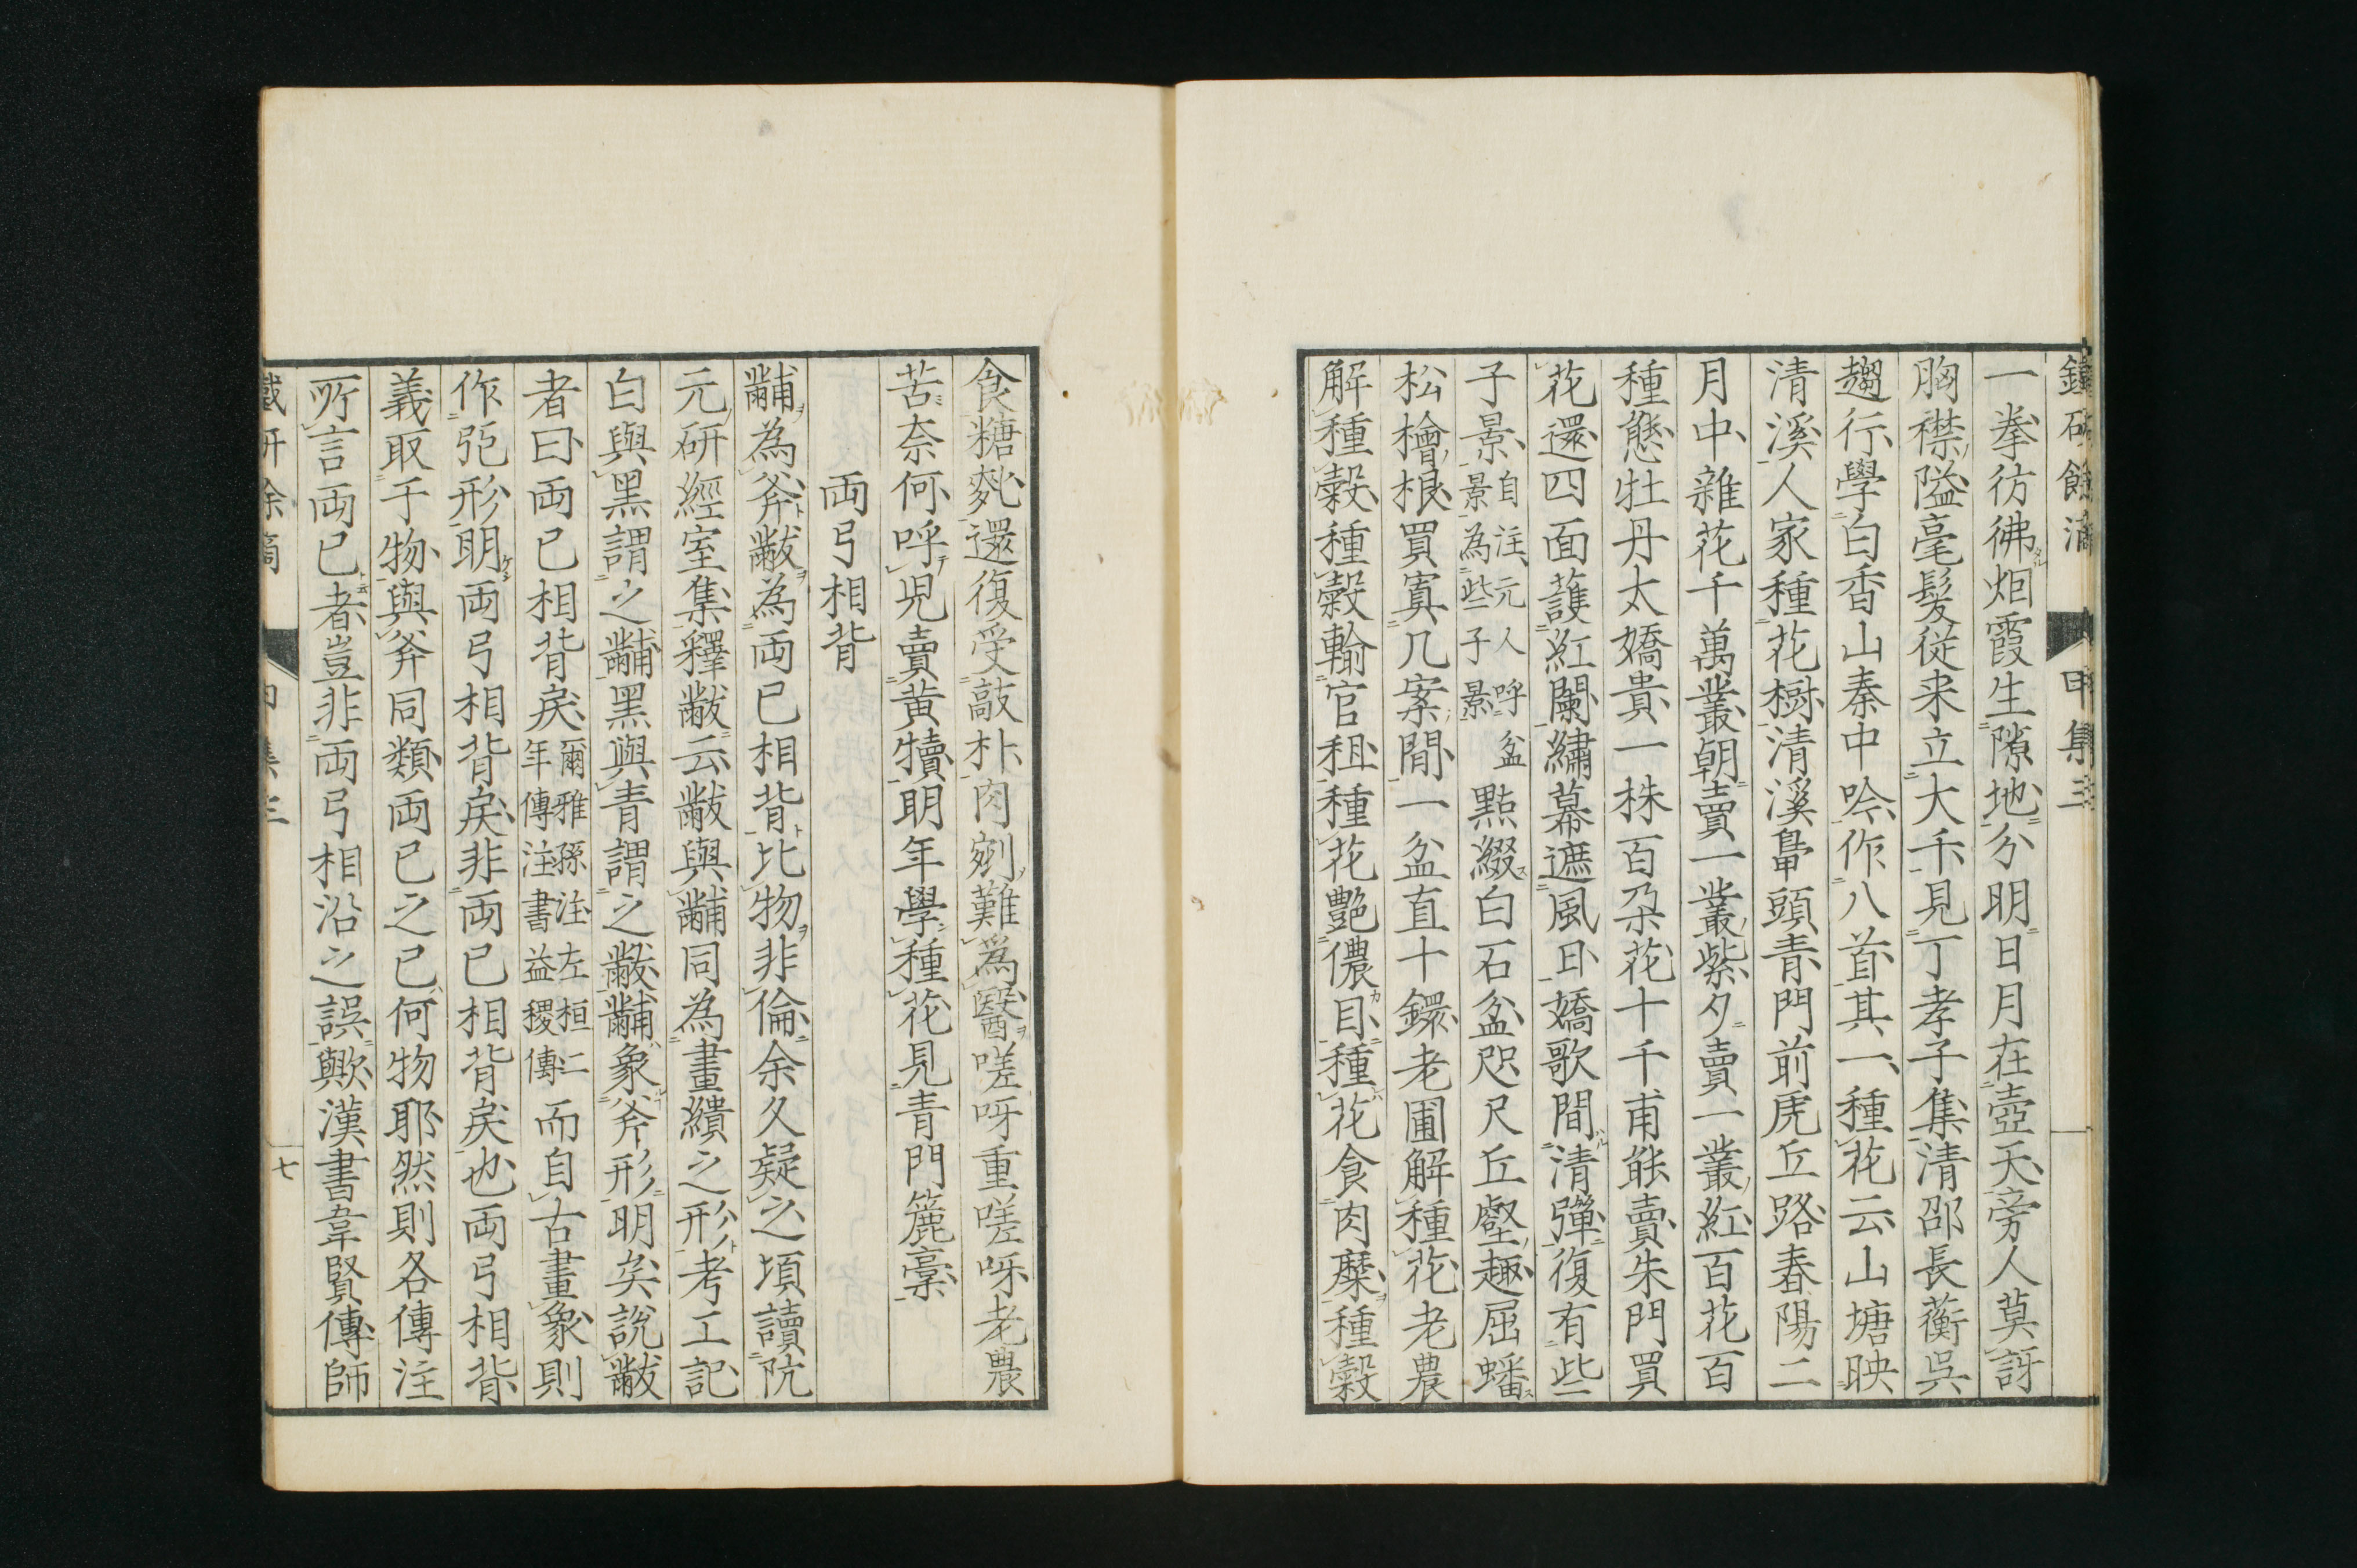 一拳彷彿烟霞生隙地分明日月在壺天旁人莫訝
胸襟隘毫髮従来立大千見丁孝子集清邵長蘅呉
趨行學白香山秦中吟作八首其一種花云山塘映
清溪人家種花樹清溪鼻頭青門前虎丘路春陽二
月中雜花千萬叢朝賣一叢紫夕賣一叢紅百花百
種態牡丹太嬌貴一株百朶花十千甫能賣朱門買
花還四面護紅闌繡幕遮風日嬌歌間清彈復有些
子景自注元人呼盆景為些子景點綴白石盆咫尺丘壑趣屈蟠
松檜根買寘几案間一盆直十鐶老圃解種花老農
解種穀種穀輸官租種花艶儂目種花食肉糜種穀
食糖麧還復受敲扑肉剜難為醫嗟呀重嗟呀老農
苦奈何呼児賣黄犢明年學種花見青門簏稾
両弓相背
黼為斧黻為両已相背比物非倫余久疑之頃讀阮
元研經室集釋黻云黻與黼同為畫繢之形考工記
白與黑謂之黼黑與青謂之黻黼象斧形明矣説黻
者曰両已相背戾爾雅孫注左桓二年傳注書益稷傳而自古畫象則
作弫形明両弓相背戾非両已相背戾也両弓相背
義取于物與斧同類両已之已何物耶然則各傳注
所言両已者豈非両弓相沿之誤歟漢書韋賢傳師
甲集三
七